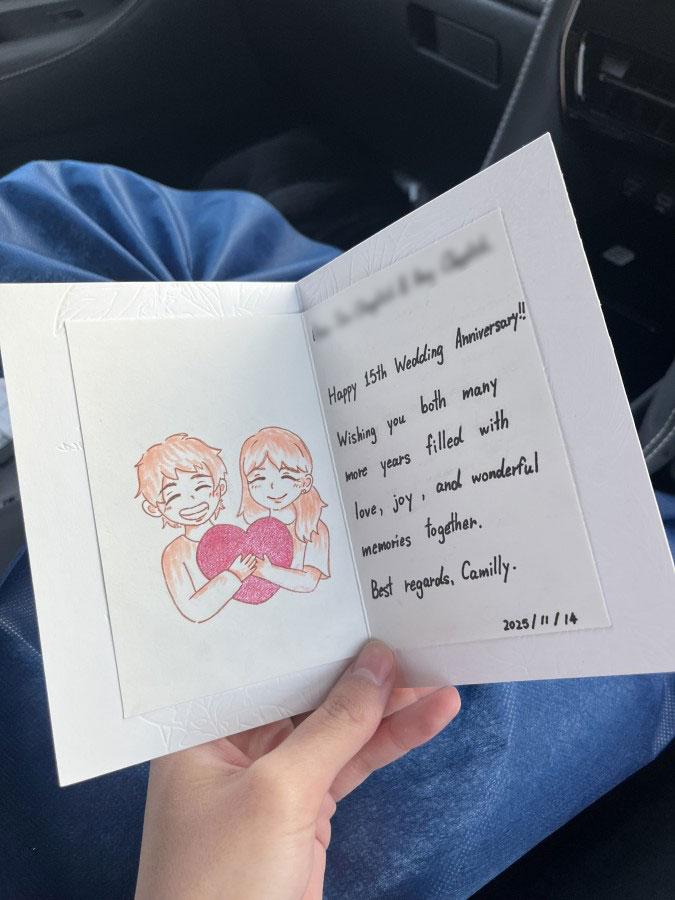 Happy 15th Wedding Anniversary!!
Wishing you both many
more years filled with
love, joy, and wonderful
memories together.
Best regards, Camilly.
2025/11/14